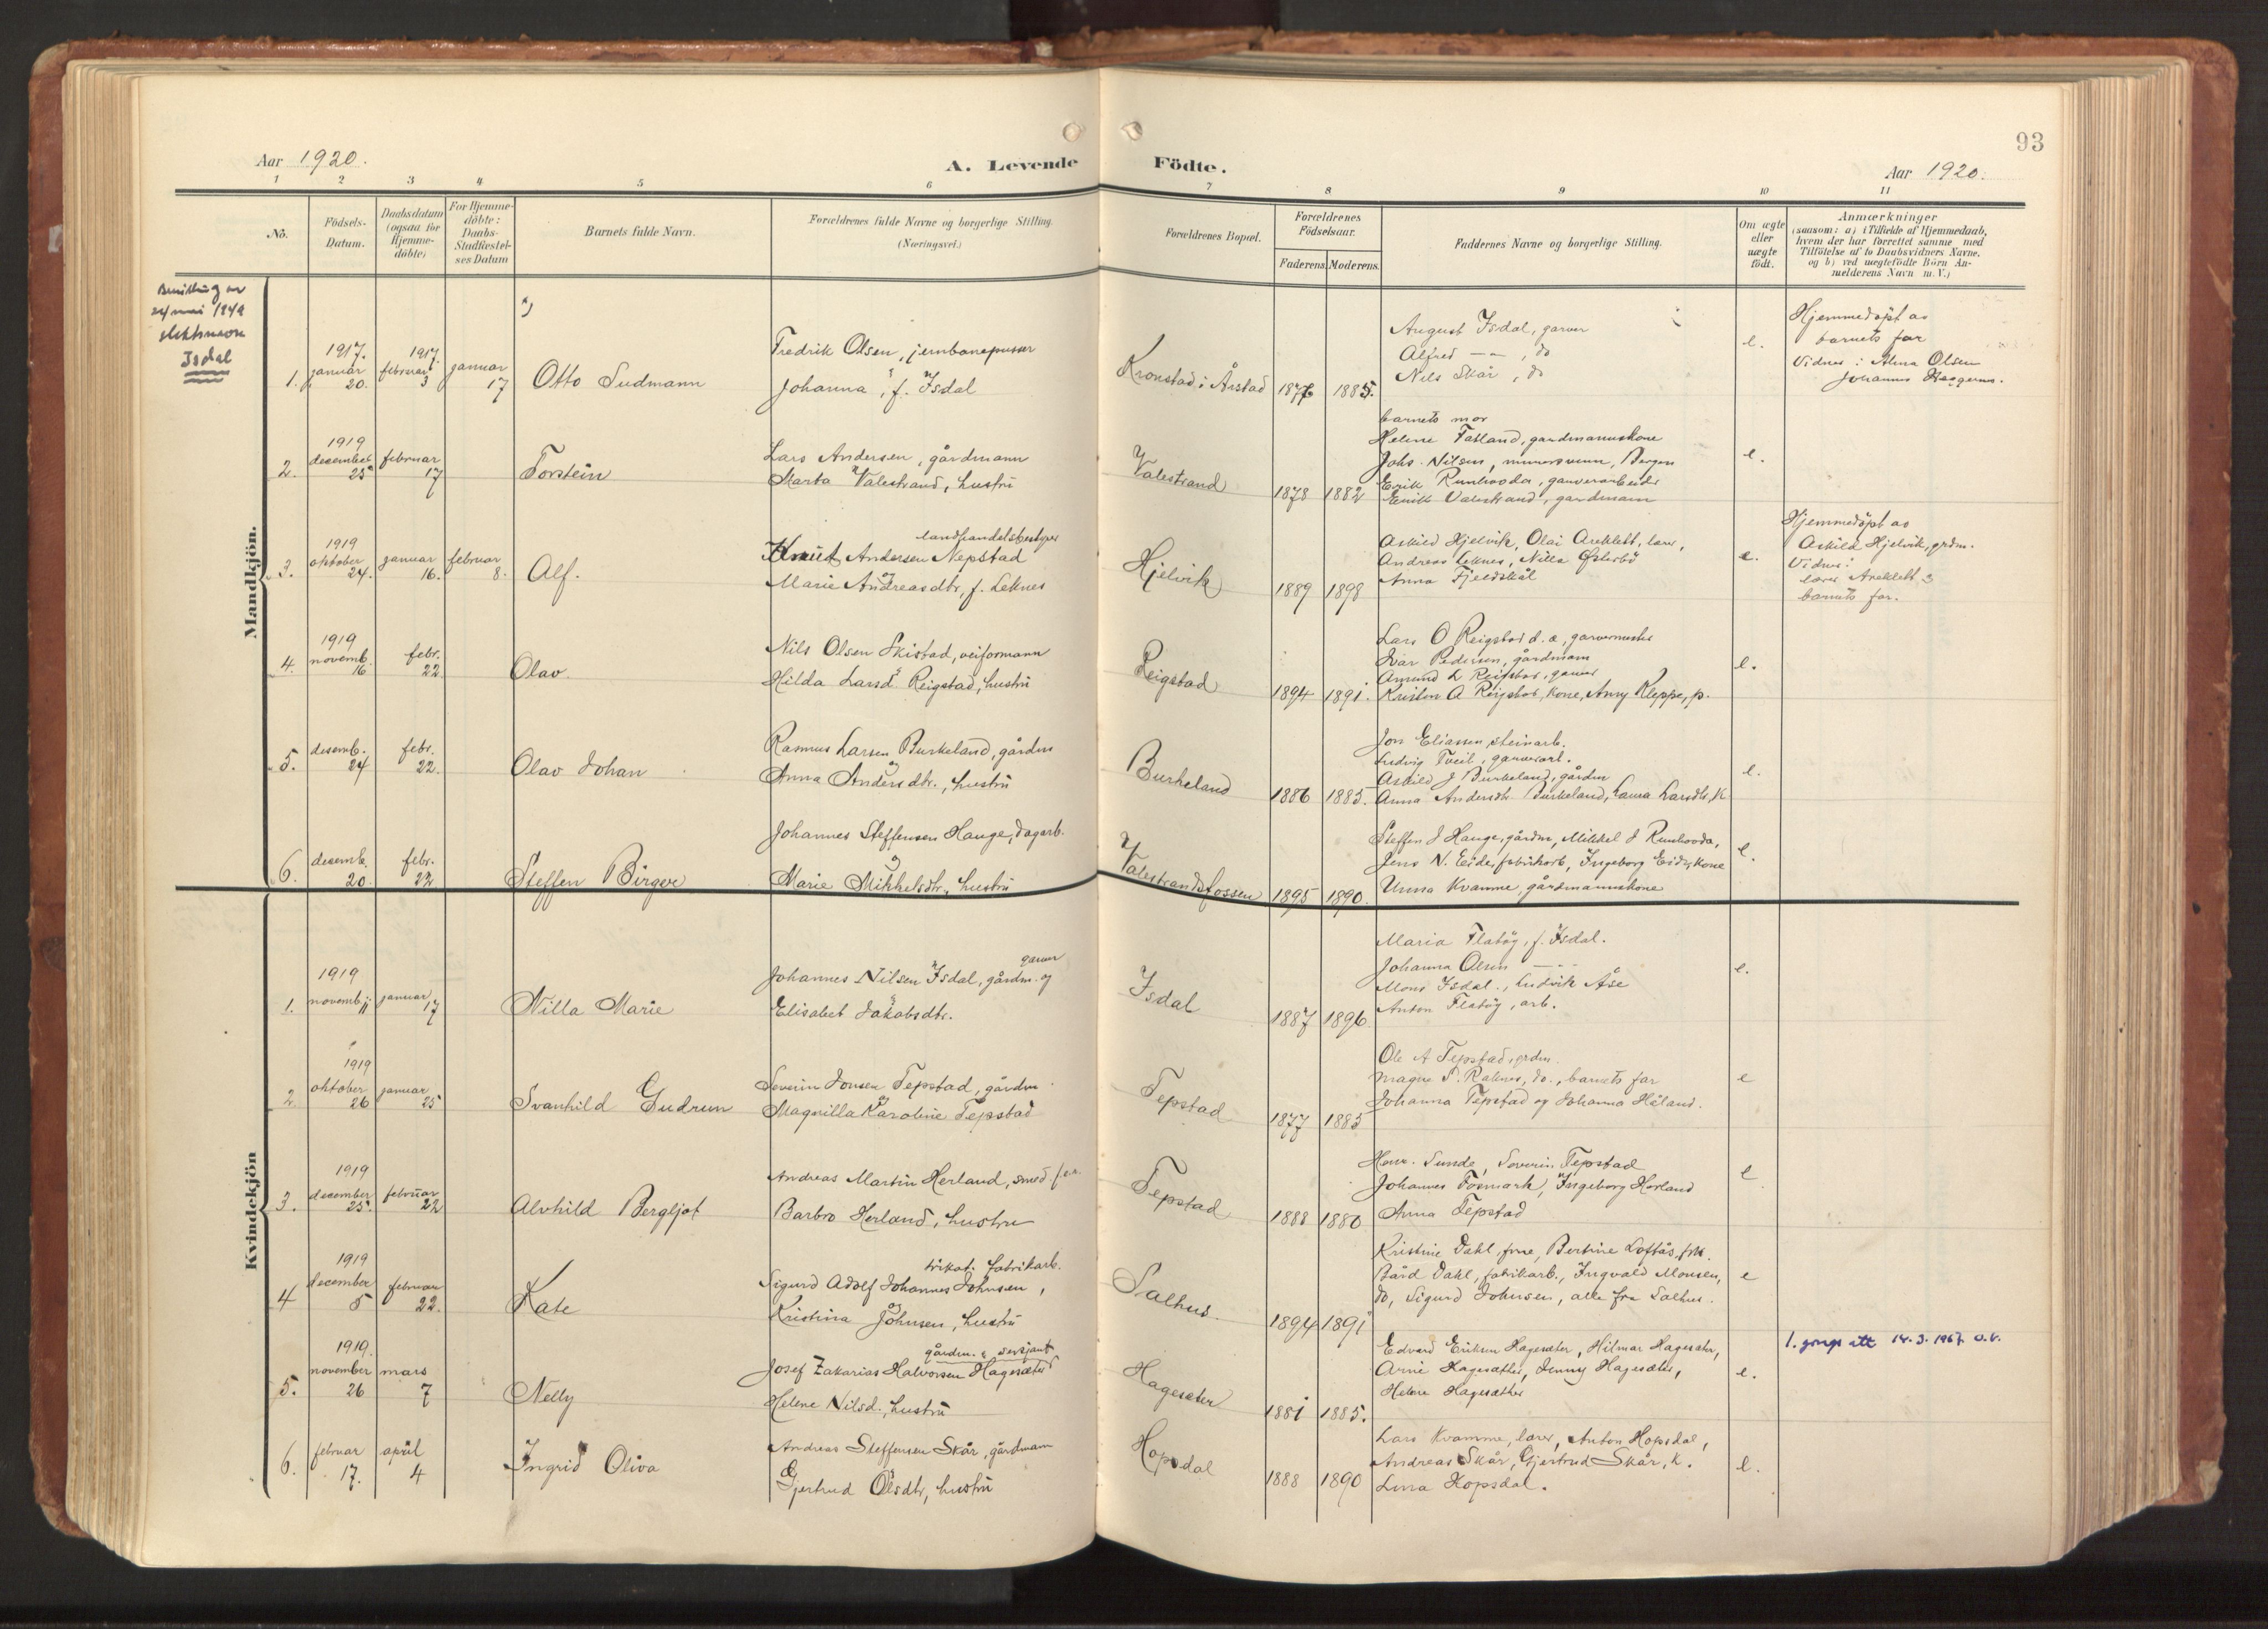 93
Aar 1920.
A. Levende Födte.
Aar 1920.
1 2 3 4 5 6 7 8 9 10 11
No.
Födsels-
Datum.
Daabsdatum
(ogsaa for
Hjemme-
döbte)
For Hjemme-
döbte:
Daabs-
Stadfæstel-
ses Datum
Barnets fulde Navn.
Forældrenes fulde Navne og borgerlige Stilling.
(Næringsvei.)
Forældrenes Bopæl.
Forældrenes
Födselsaar.
Faderens. Moderens.
Faddernes Navne og borgerlige Stilling.
Om ægte
eller
uægte
födt.
Anmærkninger
(saasom: a) i Tilfælde af Hjemmedaab,
hvem der har forrettet samme med
Tilföielse af to Daabsvidners Navne.
og b) ved uægtefödte Börn An-
melderens Navn m. V.)
24 mai 1949
slektsnavn
Isdal
Mandkjön.
1.
1917.
januar
20.
1917.
februar
3
januar
17
Otto Sudmann
Fredrik Olsen, jernbanepusser
Johanna, f. Isdal
Kronstad i Årstad
1876
1885.
August Isdal, garver
Alfred — , do
Nils Skår, do
e.
Hjemmedöpt av
barnets far
Vidner: Anna Olsen
Johannes
2.
1919
december
25
februar
17
Torstein
Lars Andersen, gårdmann
Marta Valestrand, hustru
Valestrand
1878
1882
barnets mor
Helene Fatland, gardmannskone
Johs. Nilsen, murersvenn, Bergen
Erik Runhovda, garverarbeider
Erik Valestrand, gardmann
e.
3.
1919
oktober
24.
januar
16.
februar
8.
Alf.
landhandelsbestyrer
Knut Andersen Nepstad
Marie Andreasdtr, f. Leknes
Hjelvik
1889
1898
Askild Hjelvik, Olai Areklett, lærer,
Andreas Leknes, Nilla Østerbö
Anna Fjeldskål
e.
Hjemmedöpt av
Askild Hjelvik, grdm.
Vidner:
lærer Areklett &
barnets far.
4
1919
novemb.
16
febr.
22
Olav
Nils Olsen Skistad, veiformann
Hilda Larsd. Reigstad, hustru
Reigstad
1894
1891.
Lars O Reigstad d.e., garvermester
Ivar Pedersen, gårdmann
Amund L Reigstad, garver
Kristen A Reigstad, kone, Anny Kleppe, p.
e.
5.
desemb.
24
febr.
22.
Olav Johan
Rasmus Larsen Burkeland, gårdm
Anna Andersdtr., hustru
Burkeland
1886
1885.
Jon Eliassen, steinarb.
Ludvig Tveit, garverarb.
Askild J Burkeland, gårdm
Anna Andersdtr. Burkeland, Laura Larsdtr, K
e.
6.
desemb.
20.
febr.
22
Steffen Birger
Johannes Steffensen Hauge, dagarb.
Marie Mikkelsdtr, hustru
Valestrandsfossen
1895
1890.
Steffen J Hauge, gårdm, Mikkel J Runhovda,
Jens N. Eide, fabrikarb, Ingeborg Eide, kone
Unna Kvamme, gårdmannskone
e.
Kvindekjön
1.
1919
novemb.
11
januar
17
Nilla Marie
garver
Johannes Nilsen Isdal, gårdm. og
Elisabet Jakobsdtr.
Isdal
1887
1896
Maria Flatöy, f. Isdal.
Johanna Olsen — · ·
Mons Isdal, Ludvik Åse
Anton Flatöy, arb.
e.
2.
1919
oktober
26
januar
25
Svanhild Gudrun
Severin Jonsen Tepstad, gårdm.
Magnilla Karoline Tepstad
Tepstad
1877
1885
Ole A Tepstad, grdm.
Magne S. Raknes, do., barnets far
Johanna Tepstad og Johanna Höland.
e
3.
1919
december
25.
februar
22
Alvhild Bergljot
Andreas Martin Herland, smed
Barbro Herland, hustru
Tepstad
1888
1880
Sunde, Severin Tepstad
Johannes Fosmark, Ingeborg Horland
Anna Tepstad
e
4
1919
december
5
februar
22.
Kate
trikot. fabrikarb.
Sigurd Adolf Johannes Johnsen,
Kristina Johnsen, hustru
Salhus.
1894
1891
Kristine Dahl, frue, Bertine Loftås, frk.
Bård Dahl, fabrikarb., Ingvald Monsen,
do, Sigurd Johnsen, alle fra Salhus.
e
5.
1919.
november
26
mars
7
Nelly
gårdm. & sersjant
Josef Zakarias Halvorsen Hagesæter
Helene Nilsd., hustru
Hagesæter
1881
1885.
Edvard Eriksen Hagesæter, Hilmar Hagesæter,
Arne Hagesæther, Jenny Hagesæter,
Helene Hagesæther
e.
1. gangs att 14.3.1967. O.V.
6.
februar
17.
april
4
Ingrid Oliva
Andreas Steffensen Skår, gårdmann
Gjertrud Olsdtr, hustru
Hopsdal
1888
1890
Lars Kvamme, lærer, Anton Hopsdal,
Andreas Skår, Gjertrud Skår, k.
Lina Hopsdal.
e.